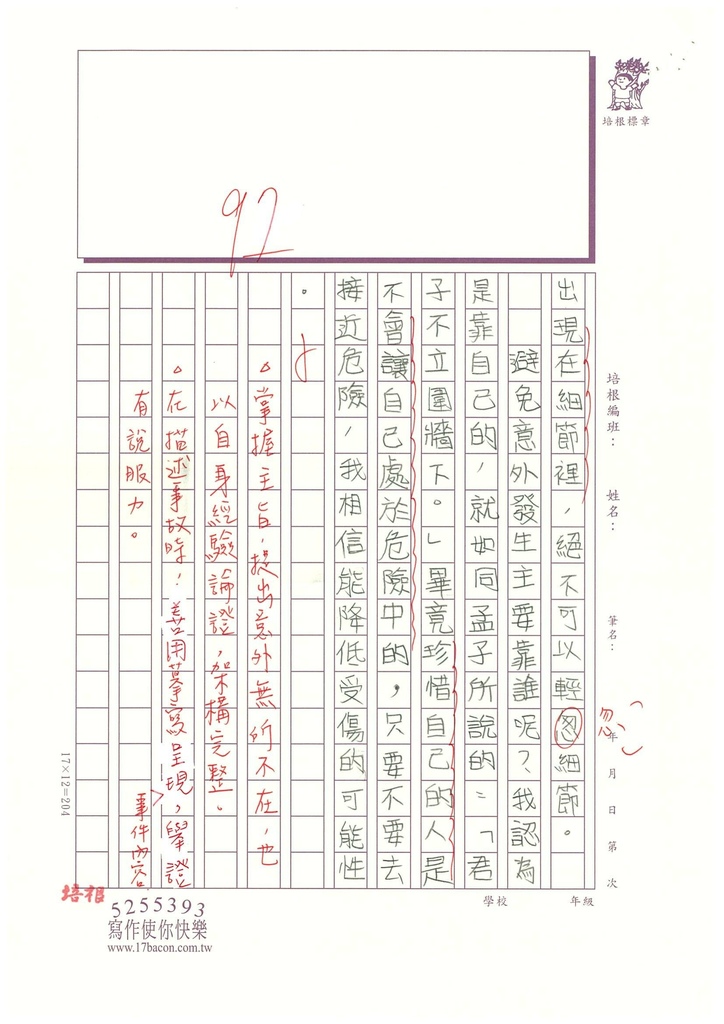 培根標章
92
培根編班：
姓名：
筆名：
年 月 日 第 次
學校
年級
出現在細節裡，絕不可以輕怱細節。
忽
避免意外發生主要靠誰呢？我認為
是靠自己的，就如同孟子所說的：「君
子不立圍牆下。」畢竟珍惜自己的人是
不會讓自己處於危險中的，只要不要去
接近危險，我相信能降低受傷的可能性
。
△掌握主旨，提出意外無所不在，也
以自身經驗論證，架構完整。
△在描述事故時，善用摹寫呈現，舉證
事件內容
有說服力。
17×12=204
培根
5255393
寫作使你快樂
www.17bacon.com.tw